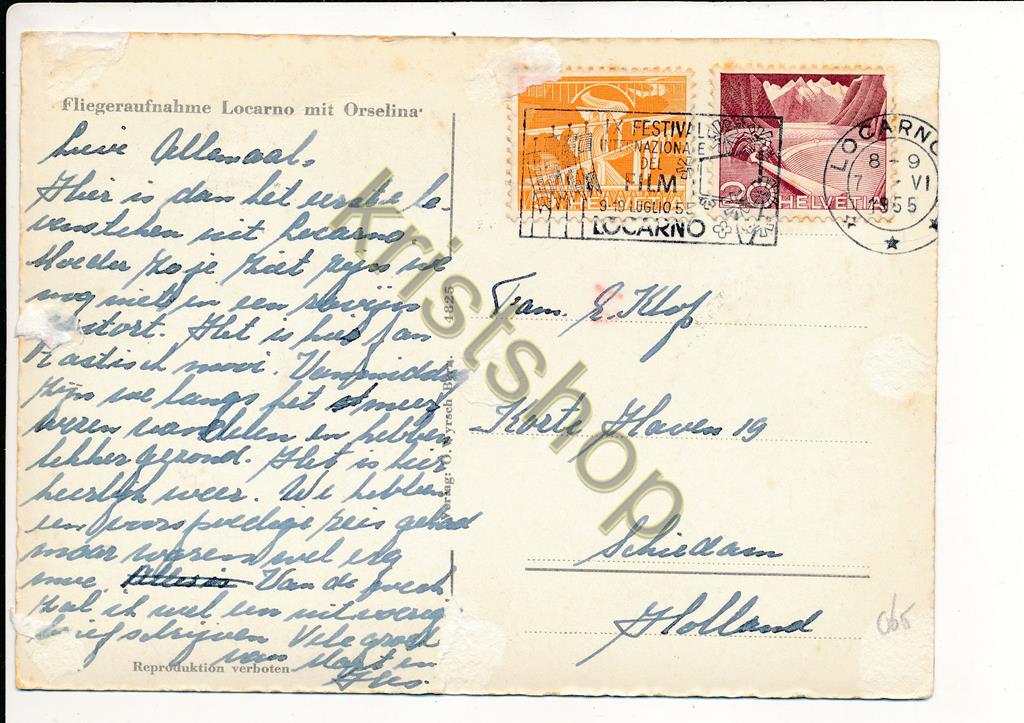 Fliegeraufnahme Locarno mit Orselina
Lieve Allemaal.
Hier is dan het eerste le-
venstehen uit Locarno
Moeder zo je ziet zijn we
nog niet in een ravijn
gestort. Het is hier fan
tastisch mooi. Vanmiddag
zijn we langs het meer
wezen wandelen en hebben
lekker gezond. Het is hier
heerlijk weer. We hebben
een voorspoedige reis gehad
maar waren wel erg
moe. Alles is Van de week
zal ik wel een uitvoerig
brief schrijven Vele groet
van Mart en
Reproduktion verboten
Verlag: O. Wyrsch Bern. 4825
FESTIVAL
NAZIONALE
DEL
FILM
9-19 LUGLIO 55
LOCARNO
HELVETIA
20 HELVETIA
LOCARNO
8-9
7 VI
1955
Fam. E. Klop
Korte Haven 19
Schiedam
Holland
065
Kristshop